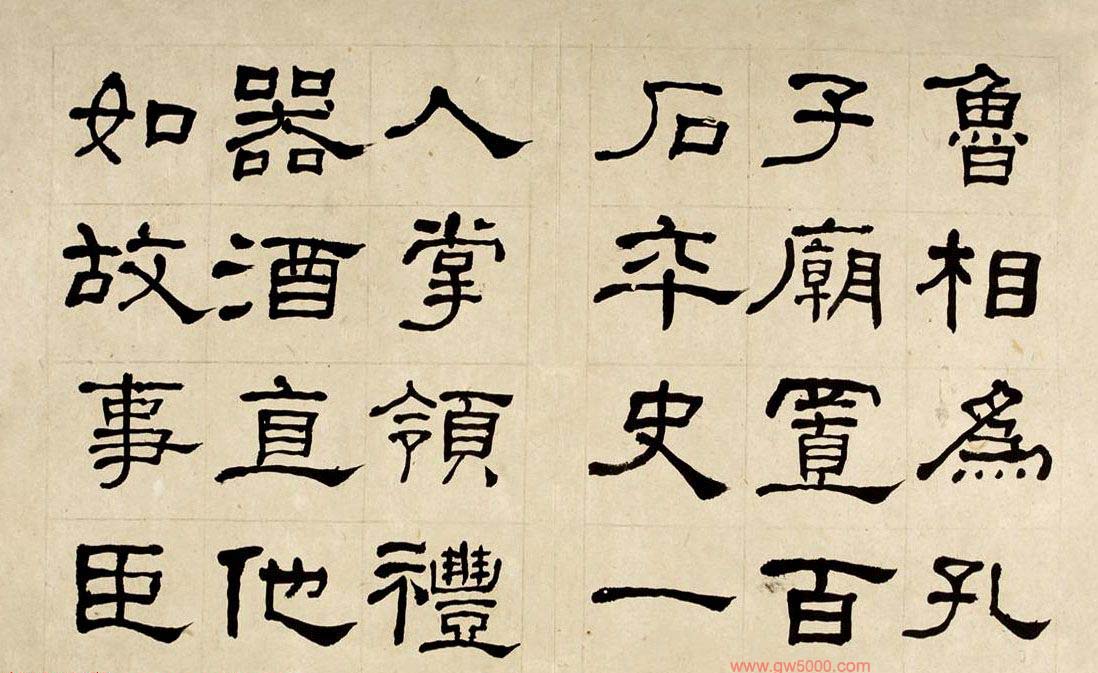 魯相為孔
子廟置百
石卒史一
人掌領禮
器酒直他
如故事臣
www.gw5000.com